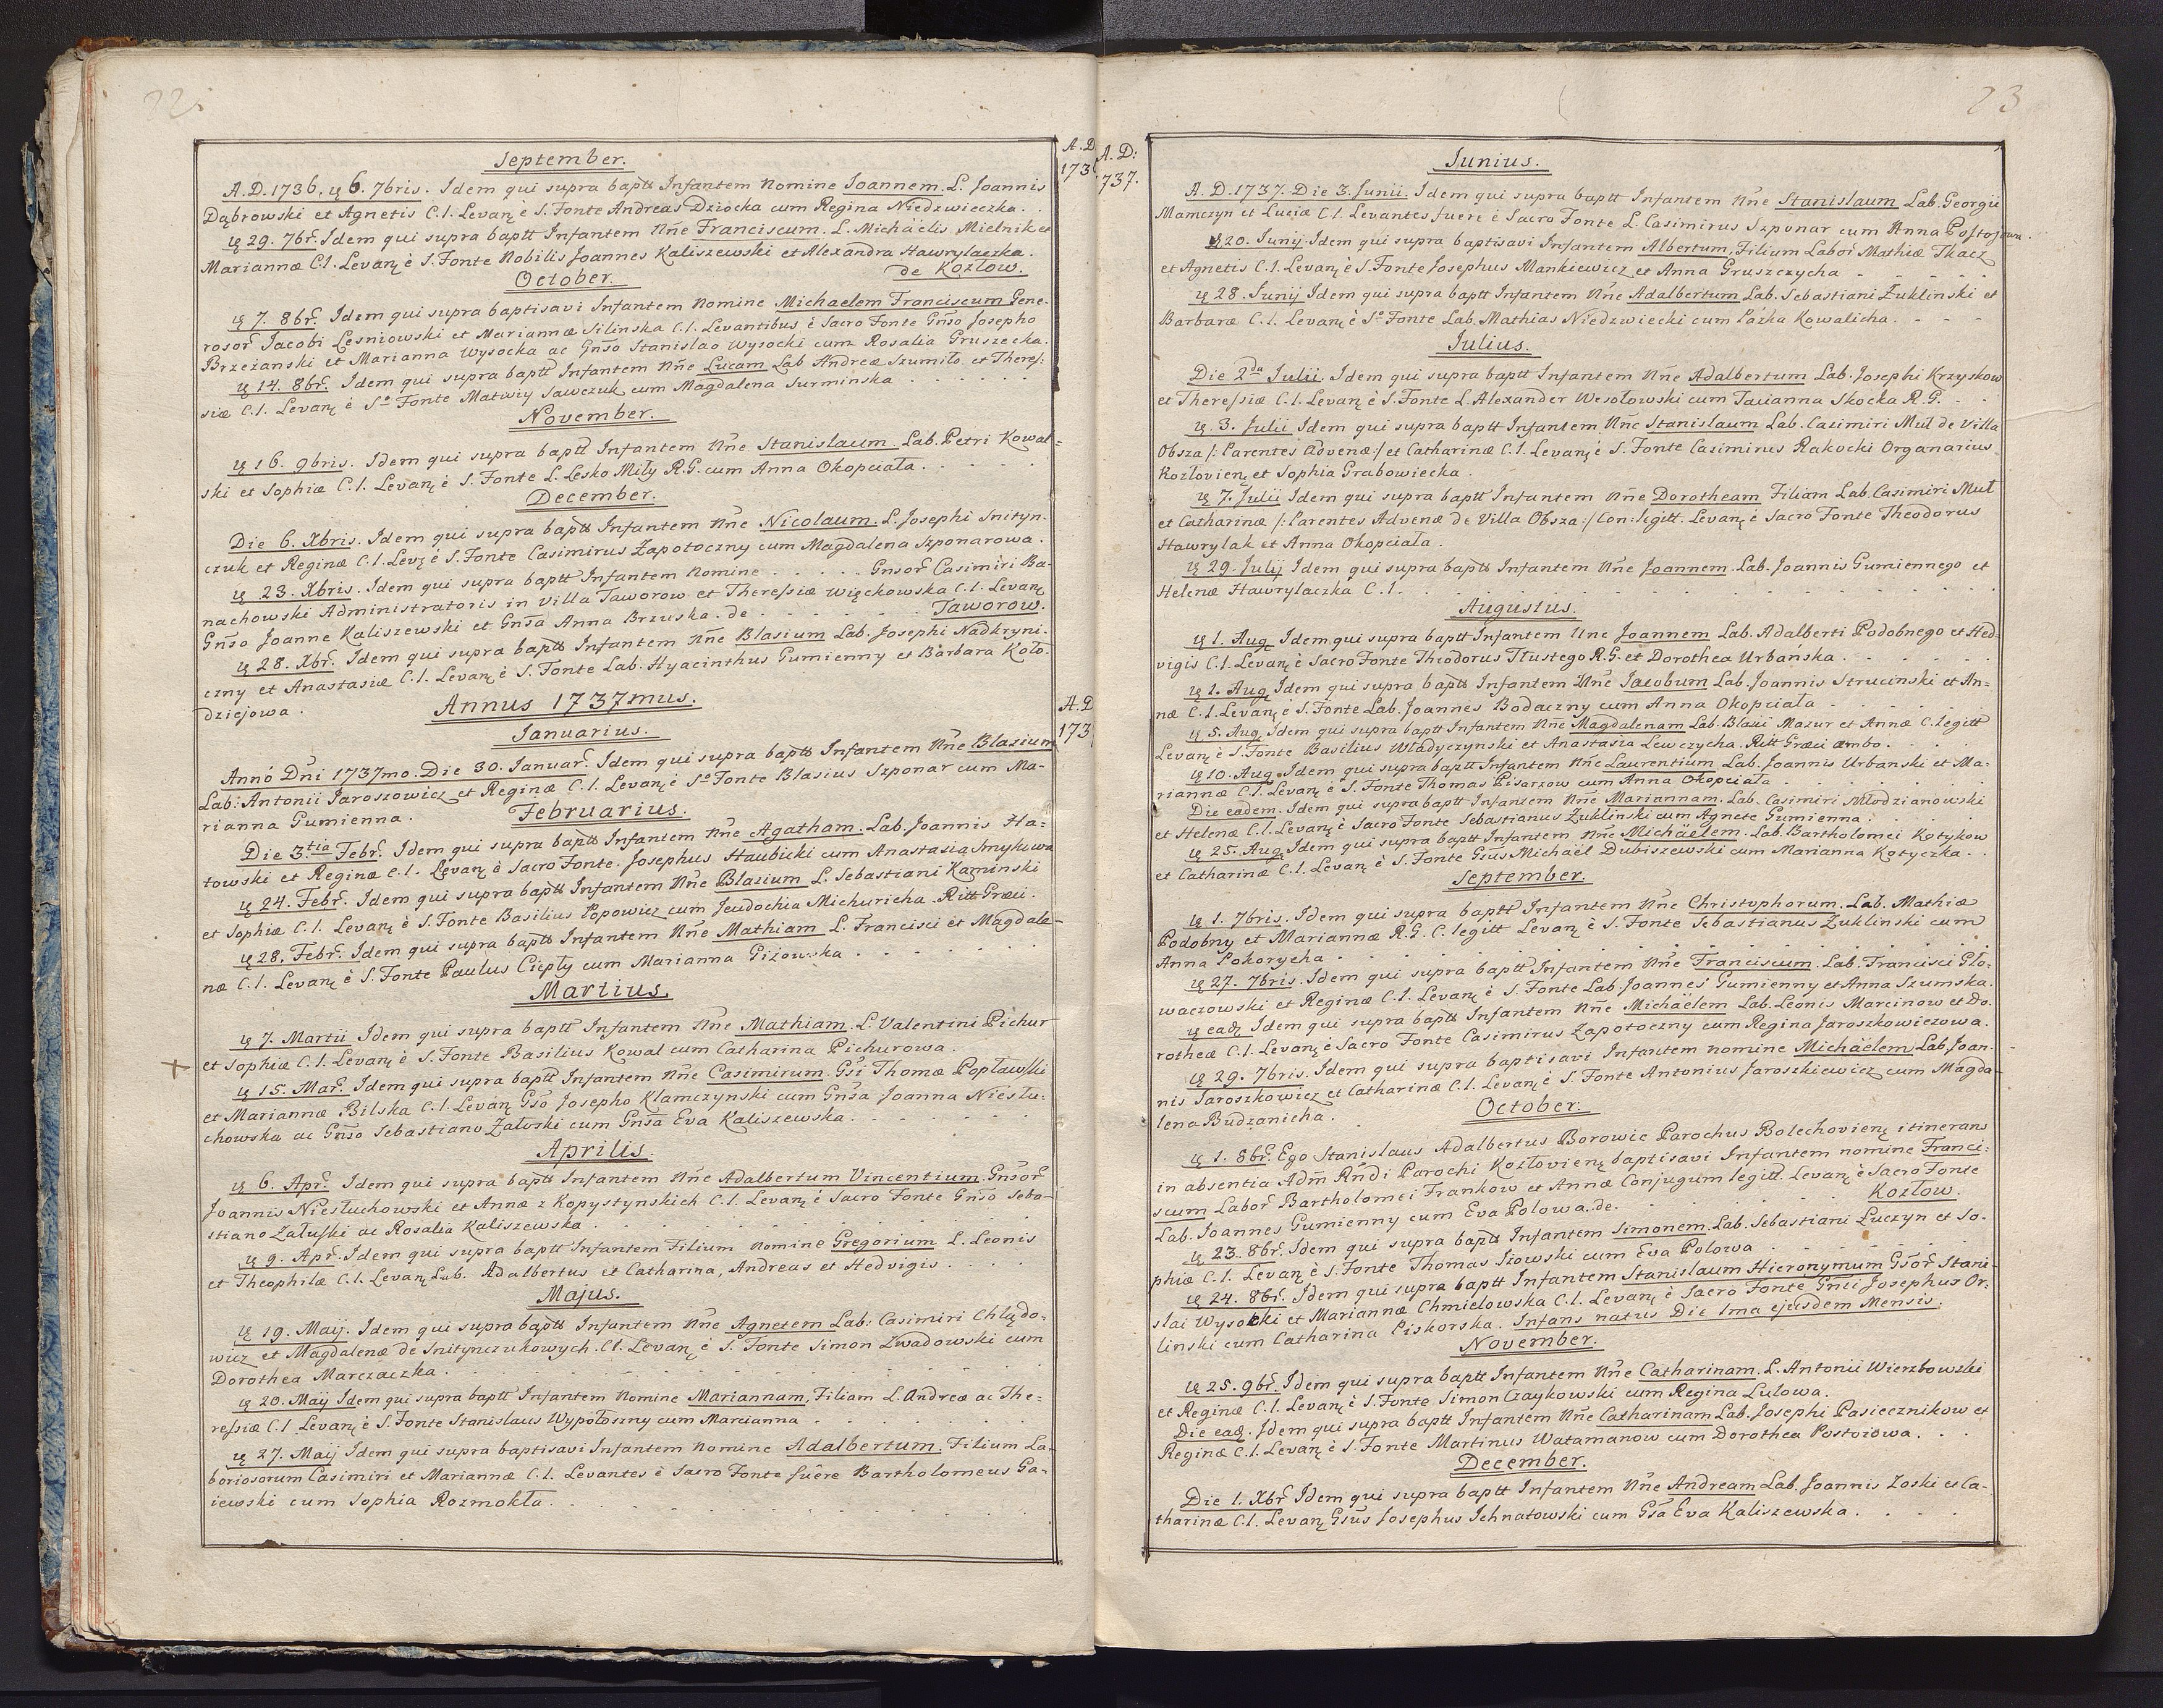 22.
A.D.
173
September.
A.D. 1736. ꝗ 6. 7bris. Idem qui supra baptt Infantem Nomine Joannem. L. Joannis
Dąbrowski et Agnetis C.l. Levanꝫ è S. Fonte Andreas Dziocka cum Regina Niedzwieczka.
ꝗ 29. 7br̃. Idem qui supra baptt Infantem Nñe Franciscum. L. Michäelis Mielnik et
Mariannæ C.l. Levanꝫ è S. Fonte Nobilis Joannes Kaliszewski et Alexandra Hawrylaczka.
October. de Kozłow.
ꝗ 7. 8br̃. Idem qui supra baptisavi Infantem Nomine Michaelem Franciscum Gene-
rosor̃ Jacobi Lesniowski et Mariannæ Silinska C.l. Levantibus è Sacro Fonte Gñso Josepho
Brzezanski et Marianna Wysocka ac Gñso Stanislao Wysocki cum Rosalia Gruszecka.
ꝗ 14. 8br̃. Idem qui supra baptt Infantem Nñe Lucam Lab Andreæ Szumiło et Theres:
siæ C.l. Levanꝫ è S° Fonte Matwiy Sawczuk cum Magdalena Surminska . . . . .
November.
ꝗ 16. 9bris. Idem qui supra baptt Infantem Nñe Stanislaum. Lab. Petri Kowal=
ski et Sophiæ C.l. Levanꝫ è S. Fonte L. Lesko Miły R.G. cum Anna Okopciała . . . . .
December.
Die 6. Xbris. Idem qui supra baptt Infantem Nñe Nicolaum. L. Josephi Snityn-
czuk et Reginæ C.l. Levꝫ è S. Fonte Casimirus Zapotoczny cum Magdalena Szponarowa.
ꝗ 23. Xbris. Idem qui supra baptt Infantem Nomine . . . . . Gnsor̃ Casimiri Ba-
nachowski Administratoris in Villa Taworow et Theressiæ Więckowska C.l. Levanꝫ
Gñso Joanne Kaliszewski et Gnsa Anna Brzuska. de . . . . . . Taworow.
ꝗ 28. Xbr̃. Idem qui supra baptt Infantem Nñe Blasium Lab. Josephi Nadkryni-
czny et Anastasiæ C.l. Levanꝫ è S. Fonte Lab. Hyacinthus Gumienny et Barbara Koło-
dziejowa.
Annus 1737mus.
A.D
173
Januarius.
Annó Dñi 1737mo. Die 30. Januar̃. Idem qui supra baptt Infantem Nñe Blasium
Lab: Antonii Jaroszowicz et Reginæ C.l. Levanꝫ è S° Fonte Blasius Szponar cum Ma-
rianna Gumienna.
Februarius.
Die 3tia Febr̃. Idem qui supra baptt Infantem Nñe Agatham. Lab. Joannis Ha=
towski et Reginæ C.l. Levanꝫ è Sacro Fonte. Josephus Haubicki cum Anastasia Smykowa
ꝗ 24. Febr̃. Idem qui supra baptt Infantem Nñe Blasium L. Sebastiani Kaminski
et Sophiæ C.l. Levanꝫ è S. Fonte Basilius Popowicz cum Jeudochia Michuricha. Ritt Græci.
ꝗ 28. Febr̃. Idem qui supra baptt Infantem Nñe Mathiam L. Francisci et Magdale-
næ C.l. Levanꝫ è S. Fonte Paulus Ciepły cum Marianna Gizowska . . .
Martius.
ꝗ 7. Martii Idem qui supra baptt Infantem Nñe Mathiam. L. Valentini Pichur
et Sophiæ C.l. Levanꝫ è S. Fonte Basilius Kowal cum Catharina Pichurowa.
+
ꝗ 15. Mar̃. Idem qui supra baptt Infantem Nñe Casimirum. Gsi Thomæ Popławski
et Mariannæ Bilska C.l. Levanꝫ Gso Josepho Klamczynski cum Gnsa Joanna Niestu:
chowska ac Gñso Sebastiano Załuski cum Gnsa Eva Kaliszewska. . .
Aprilis.
ꝗ 6. Apr̃. Idem qui supra baptt Infantem Nñe Adalbertum Vincentium. Gnsor̃
Joannis Niesłuchowski et Annæ z Kopystynskich C.l. Levanꝫ è Sacro Fonte Gnso Seba-
stiano Załuski ac Rosalia Kaliszewska . . . . .
ꝗ 9. Apr̃. Idem qui supra baptt Infantem Filium Nomine Gregorium L. Leonis
et Theophilæ C.l. Levanꝫ Lab. Adalbertus et Catharina, Andreas et Hedvigis . . . .
Majus.
ꝗ 19. Maij. Idem qui supra baptt Infantem Nñe Agnetem Lab: Casimiri Chlędo-
wicz et Magdalenæ de Snitynczukowych. Cl. Levanꝫ è S. Fonte Simon Zwadowski cum
Dorothea Marczaczka.
ꝗ 20. Maij Idem qui supra baptt Infantem Nomine Mariannam, Filiam L. Andreæ ac The=
ressiæ C.l Levanꝫ è S. Fonte Stanislaus Wypółoszny cum Marcianna . . . .
ꝗ 27. Maij Idem qui supra baptisavi Infantem Nomine Adalbertum. Filium La-
boriosorum Casimiri et Mariannæ C.l. Levantes è Sacro Fonte fuêre Bartholomeus Ga-
iewski cum Sophia Rozmokła.
23
A.D:
737.
Junius.
A.D. 1737. Die 3. Junii. Idem qui supra baptt Infantem Nñe Stanislaum Lab. Georgii
Mamczyn et Luciæ C.l. Levantes fuêre è Sacro Fonte L. Casimirus Szponar cum Anna Postojowa.
ꝗ 20. Junij. Idem qui supra baptisavi Infantem Albertum, Filium Labor̃ Mathiæ Tkacz
et Agnetis C.l. Levanꝫ è S. Fonte Josephus Mankiewicz et Anna Gruszczycha . . . .
ꝗ 28. Junij Idem qui supra baptt Infantem Nñe Adalbertum Lab. Sebastiani Zuklinski et
Barbaræ C.l. Levanꝫ è S° Fonte Lab. Mathias Niedzwiecki cum Pázka Kowalicha. . - -
Julius.
Die 2da Julii. Idem qui supra baptt Infantem Nñe Adalbertum Lab. Josephi Krzyskow
et Theressiæ C.l. Levanꝫ è S. Fonte L. Alexander Wesołowski cum Tacianna Skocka R.G. . .
ꝗ. 3. Julii Idem qui supra baptt Infantem Nñe Stanislaum Lab. Casimiri Mul de Villa
Obsza /: Parentes Advenæ:/ et Catharinæ C.l. Levanꝫ è S. Fonte Casimirus Rakocki Organarius
Kozłovienꝫ et Sophia Grabowiecka.
ꝗ 7. Julii Idem qui supra baptt Infantem Nñe Dorotheam Filiam Lab. Casimiri Mul
et Catharinæ /: Parentes Advenæ de Villa Obsza :/ Con: legitt. Levanꝫ è Sacro Fonte Theodorus
Hawrylak et Anna Okopciała.
ꝗ 29. Julij Idem qui supra baptt Infantem Nñe Joannem. Lab. Joannis Gumiennego et
Helenæ Hawrylaczka C.l. . . . .
Augustus.
ꝗ 1. Augꝫ Idem qui supra baptt Infantem Nñe Joannem Lab. Adalberti Podobnego et Hed-
vigis C.l. Levanꝫ è Sacro Fonte Theodorus Tłustego R.G. et Dorothea Urbańska . . . .
ꝗ 1. Augꝫ Idem qui supra baptt Infantem Nñe Jacobum Lab. Joannis Strucinski et An=
næ C.l. Levanꝫ è S. Fonte Lab. Joannes Bodaczny cum Anna Okopciała . . . .
ꝗ 5. Augꝫ Idem qui supra baptt Infantem Nñe Magdalenam Lab. Blasii Mazur et Annæ C. legitt
Levanꝫ è S. Fonte Basilius Wladyczynski et Anastasia Lewczycha. Ritt Græci ambo. . . .
ꝗ 10. Augꝫ. Idem qui supra baptt Infantem Nñe Laurentium Lab. Joannis Urbanski et Ma=
riannæ C.l. Levanꝫ è S. Fonte Thomas Pisarzow cum Anna Okopciała . . . .
Die eadem. Idem qui supra baptt Infantem Nñe Mariannam. Lab. Casimiri Młodzianowski
et Helenæ C.l. Levanꝫ è Sacro Fonte Sebastianus Zuklinski cum Agnete Gumienna. . . .
ꝗ 25. Augꝫ Idem qui supra baptt Infantem Nñe Michäelem. Lab. Bartholomei Kotykow
et Catharinæ C.l. Levanꝫ è S. Fonte Gsus Michaël Dubiszewski cum Marianna Kotyczka. .
September.
ꝗ 1. 7bris. Idem qui supra baptt Infantem Nñe Christophorum. Lab. Mathiæ
Podobny et Mariannæ R.G. C. legitt Levanꝫ è S. Fonte Sebastianus Zuklinski cum
Anna Pokorycha . . . . .
ꝗ 27. 7bris. Idem qui supra baptt Infantem Nñe Franciscum. Lab. Francisci Gło-
waczowski et Reginæ C.l. Levanꝫ è S. Fonte Lab. Joannes Gumienny et Anna Szumska.
ꝗ eadꝫ Idem qui supra baptt Infantem Nñe Michäelem Lab. Leonis Marcinow et Do-
rotheæ C.l. Levanꝫ è Sacro Fonte Casimirus Zapotoczny cum Regina Jaroszkowiczowa.
ꝗ 29. 7bris. Idem qui supra baptisavi Infantem nomine Michäelem Lab. Joan-
nis Jaroszkowicz et Catharinæ C.l. Levanꝫ è S. Fonte Antonius Jaroszkiewicz cum Magda-
lena Budzanicha.
October.
ꝗ 1. 8br̃. Ego Stanislaus Adalbertus Borowic Parochus Bolechovienꝫ itinerans
in absentia Adm̃ Rñdi Parochi Kozłovienꝫ baptisavi Infantem nomine Franci:
scum Labor̃ Bartholomei Frankow et Annæ Conjugum legitt. Levanꝫ è Sacro Fonte
Lab. Joannes Gumienny cum Eva Polowa. de. . Kozłow.
ꝗ 23. 8br̃. Idem qui supra baptt Infantem Simonem. Lab. Sebastiani Łuczyn et So-
phiæ C.l. Levanꝫ è S. Fonte Thomas Izowski cum Eva Polowa . . . .
ꝗ 24. 8br̃. Idem qui supra baptt Infantem Stanislaum Hieronymum Gsor̃ Stani-
slai Wysocki et Mariannæ Chmielowska C.l. Levanꝫ è Sacro Fonte Gnii Josephus Or-
linski cum Catharina Piskorska. Infans natus Die 1ma ejusdem Mensis.
November.
ꝗ 25. 9br̃. Idem qui supra baptt Infantem Nñe Catharinam. L. Antonii Wierzbowski
et Reginæ C.l. Levanꝫ è S. Fonte Simon Czaykowski cum Regina Lulowa.
Die eadꝫ. Idem qui supra baptt Infantem Nñe Catharinam Lab. Josephi Pasiecznikow et
Reginæ C.l. Levanꝫ è S. Fonte Martinus Watamanow cum Dorothea Postoiowa. . .
December.
Die 1. Xbr̃ Idem qui supra baptt Infantem Nñe Andream Lab. Joannis Zoski et Ca-
tharinæ C.l. Levanꝫ Gsus Josephus Jehnatowski cum Gsa Eva Kaliszewska . . . .